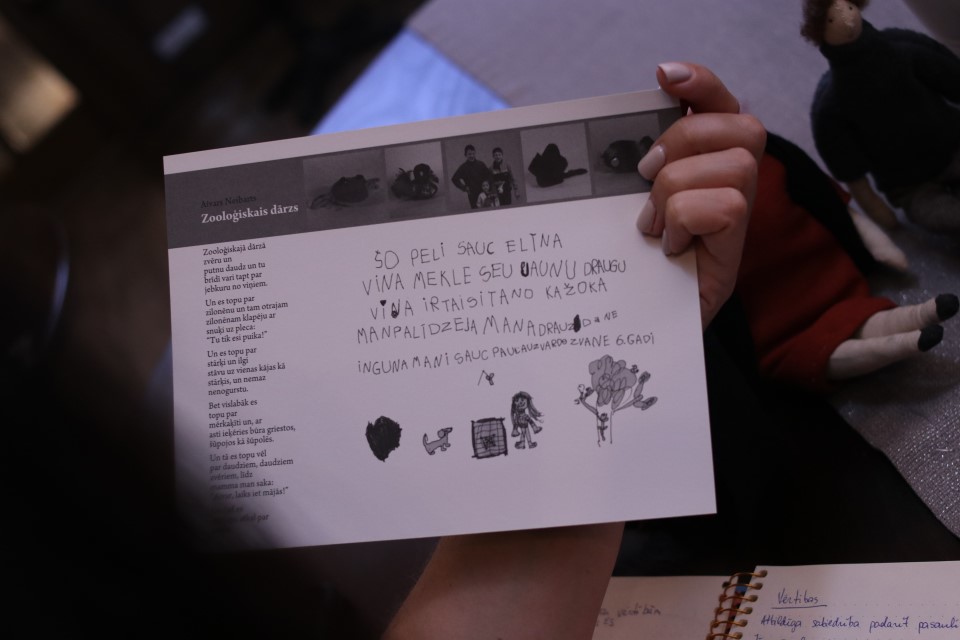 Aivars Neibarts
Zooloģiskais dārzs
Zooloģiskajā dārzā
zvēru un
putnu daudz un tu
brīdi vari tapt par
jebkuru no viņiem.
Un es topu par
zilonēnu un tam otrajam
zilonēnam klapēju ar
snuķi uz pleca:
"Tu tik esi puika!"
Un es topu par
stārķi un ilgi
stāvu uz vienas kājas kā
stārķis, un nemaz
nenogurstu.
Bet vislabāk es
topu par
mērkaķīti un, ar
asti ieķēries būra griestos,
šūpojos kā šūpolēs.
Un tā es topu vēl
par daudziem, daudziem
zvēriem, līdz
mamma man saka:
laiks iet mājās!"
atkal par
ŠO PELI SAUC ELINA
VIŅA MEKLE SEU JAUNU DRAUGU
VIŅA IRTAISITANO KAŽOKA
MANPALIDZEJA MANA DRAUZD
NE
INGUNA MANI SAUC PAULA UZVARDO ZVANE 6.GADI
Vērtības
Atbildīga sabiedrība padarīt pasauli